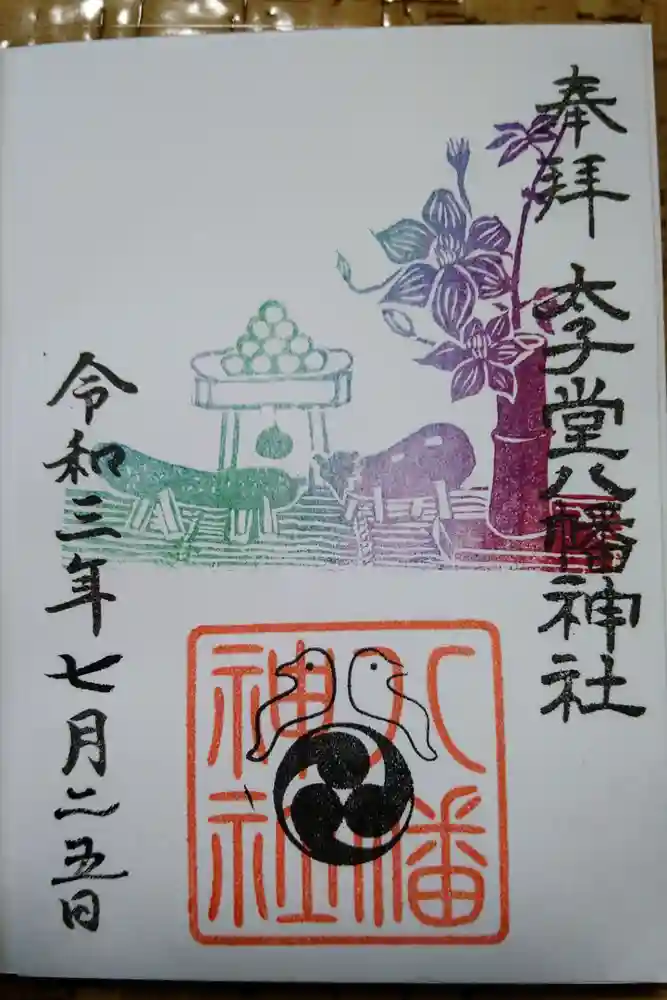 奉拝
太子堂八幡神社
八幡
神社
令和三年七月二五日